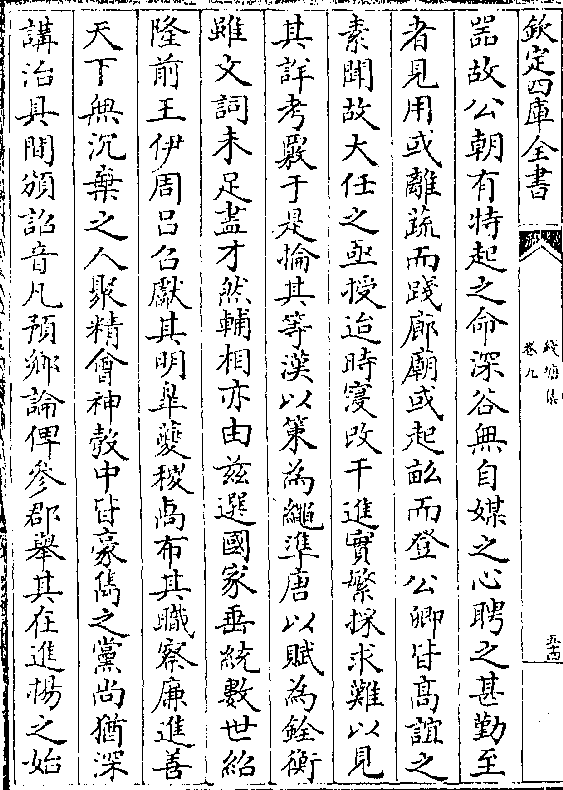 欽定四庫全書
錢塘集
卷九
五十四
器故公朝有特起之命深谷無自媒之心聘之甚勤至
者見用或離蔬而踐廊廟或起畝而登公卿皆高誼之
素聞故大任之亟授迨時寖改干進實繁採求難以見
其詳考覈于是掄其等漢以策為繩準唐以賦為銓衡
雖文詞未足盡才然輔相亦由兹選國家垂統數世紹
隆前王伊周吕召獻其明臯夔稷卨布其職察廉進善
天下無沉棄之人聚精會神彀中皆豪儁之黨尚猶深
講治具間頒詔音凡預鄉論俾參郡舉其在進楊之始